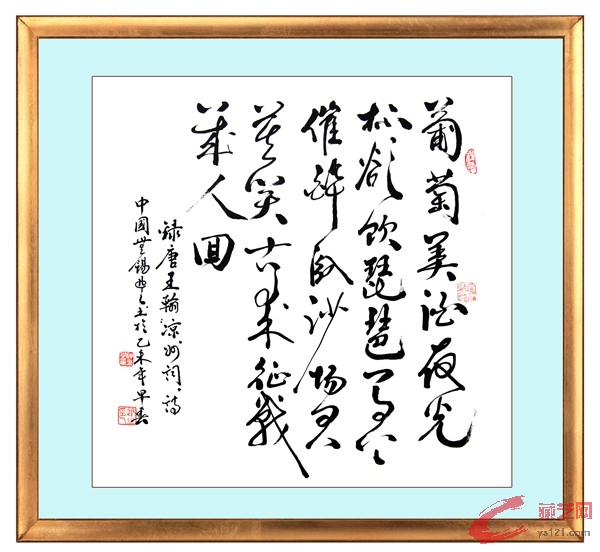 葡萄美酒夜光
杯欲饮琵琶马上
催醉卧沙场君
莫笑古来征战
幾人回
录唐王翰凉州词诗
中国無锡於乙未年早春
藏艺网
ys121.com